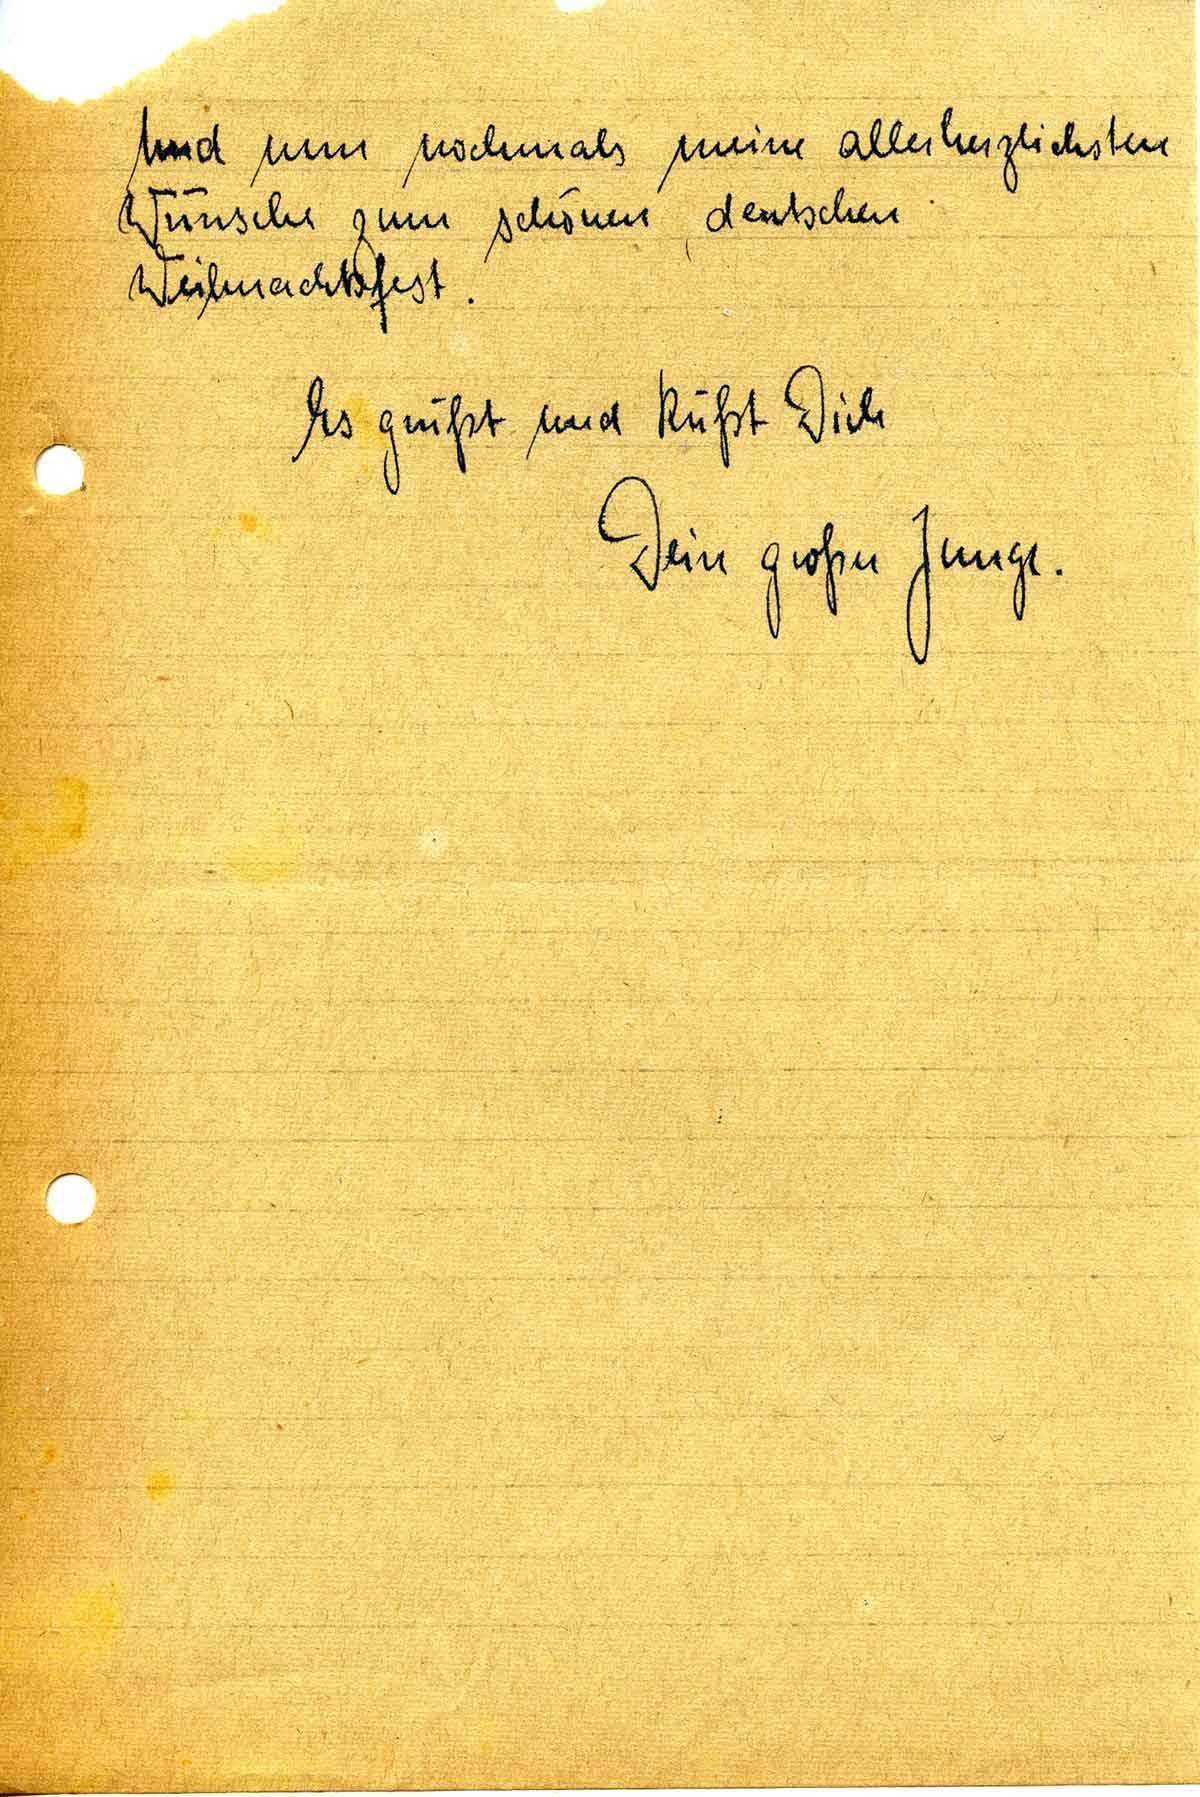 Und nun nochmals meine allerherzlichsten
Wünsche zum schönen, deutschen
Weihnachtsfest.
Es grüßt und küßt Dich
Dein großer Junge.